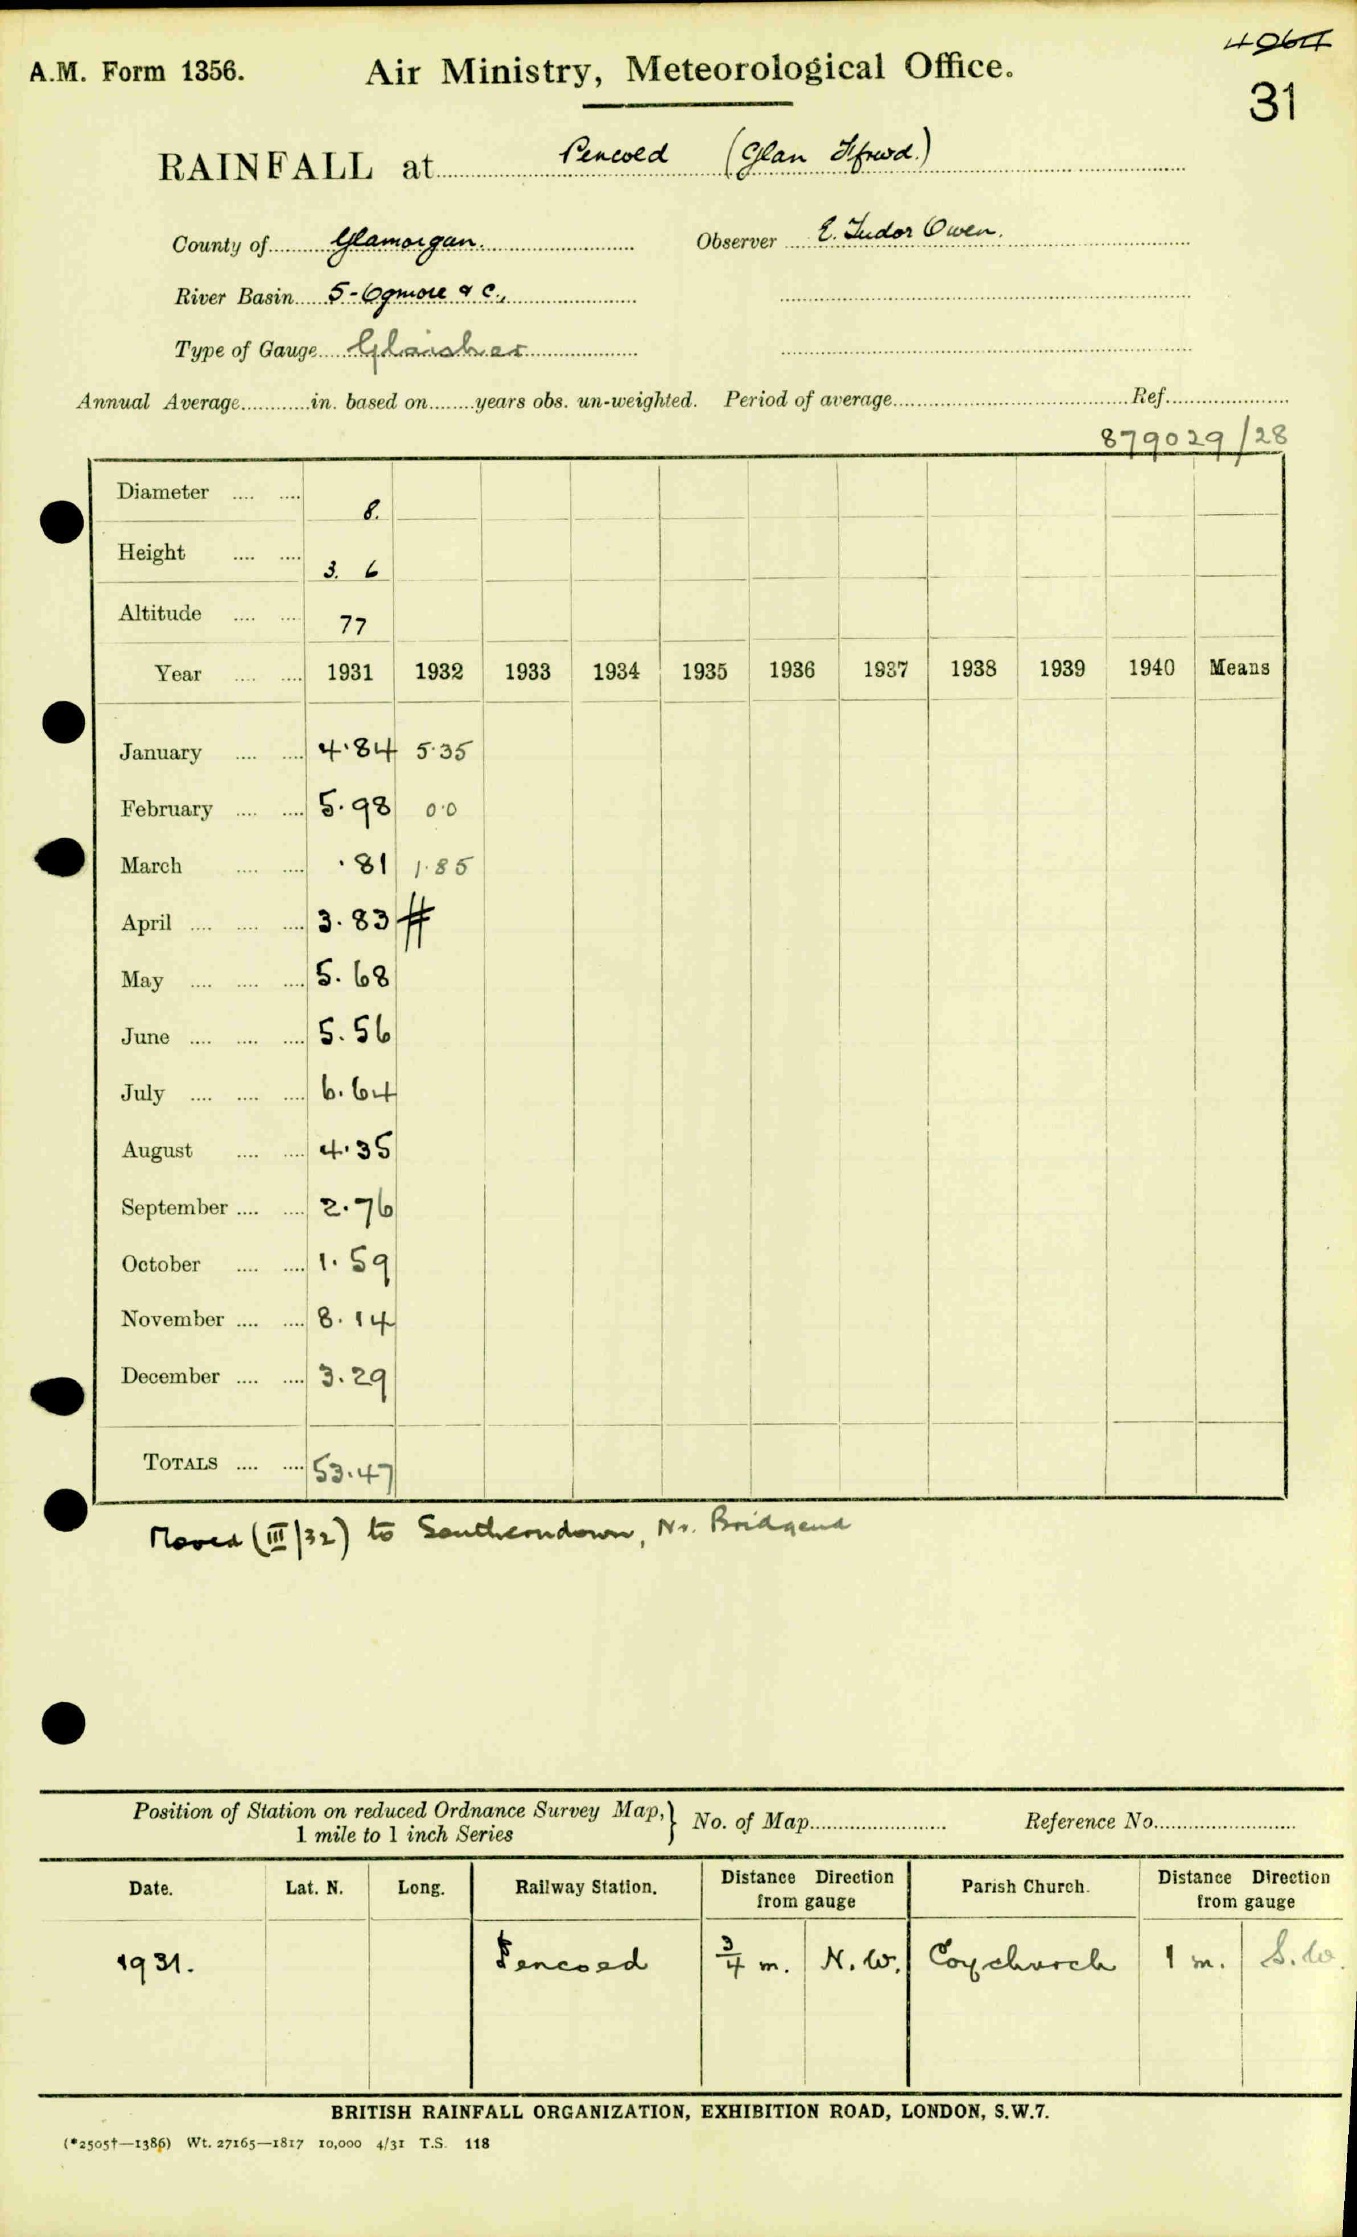 4064
A.M. Form 1356. Air Ministry, Meteorological Office.
31
RAINFALL at Pencoed (Glan Ffrwd.)
County of Glamorgan. Observer E. Tudor Owen.
River Basin 5-Ogmore & C.,
Type of Gauge Glaisher
Annual Average in. based on years obs. un-weighted. Period of average Ref.
879029/28
Diameter 8.
Height 3. 6
Altitude 77
Year 1931 1932 1933 1934 1935 1936 1937 1938 1939 1940 Means
January 4.84 5.35
February 5.98 0.0
March .81 1.85
April 3.83 #
May 5.68
June 5.56
July 6.64
August 4.35
September 2.76
October 1.59
November 8.14
December 3.29
TOTALS 53.47
Moved (III/32) to Southerndown, Nr. Bridgend
Position of Station on reduced Ordnance Survey Map, } No. of Map Reference No.
1 mile to 1 inch Series
Date. Lat. N. Long. Railway Station. Distance Direction from gauge Parish Church. Distance Direction from gauge
1931. Pencoed 3/4 m. N.W. Coychurch 1 m. S.W.
BRITISH RAINFALL ORGANIZATION, EXHIBITION ROAD, LONDON, S.W.7.
(*2505†—1386) Wt. 27165—1817 10,000 4/31 T.S. 118